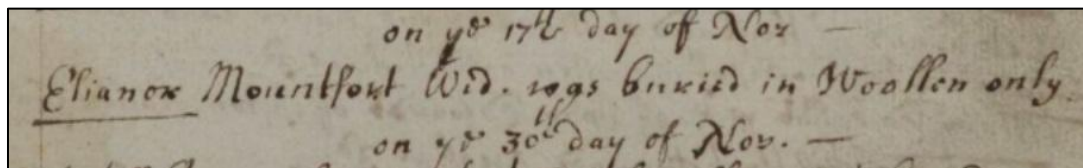 on yᵉ 17th day of Nov —
Elianor Mountfort Wid. was buried in Woollen only
on yᵉ 30th day of Nov. —